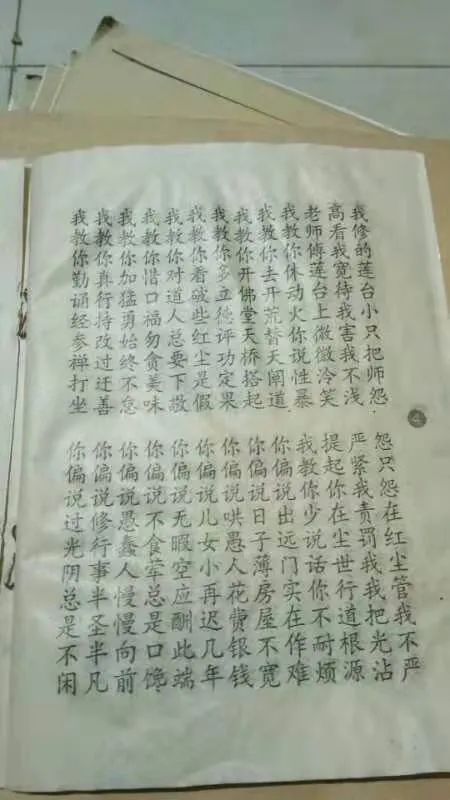 我修的莲台小只把师怨
怨只怨在红尘管我不严
高看我宽待我害我不浅
严紧我责罚我我把光沾
老师傅莲台上微微冷笑
提起你在尘世行道根源
我教你休动火你说性暴
我教你少说话你不耐烦
我教你去开荒替天阐道
你偏说出远门实在作难
我教你开佛堂天桥搭起
你偏说日子薄房屋不宽
我教你多立德评功定果
你偏说哄愚人花费银钱
我教你看破些红尘是假
你偏说儿女小再迟几年
我教你对道人总要下敬
你偏说无暇空应酬此端
我教你惜口福勿贪美味
你偏说不食荤总是口馋
我教你加猛勇始终不怠
你偏说愚蠢人慢慢向前
我教你真行持改过迁善
你偏说修行事半圣半凡
我教你勤诵经参禅打坐
你偏说过光阴总是不闲